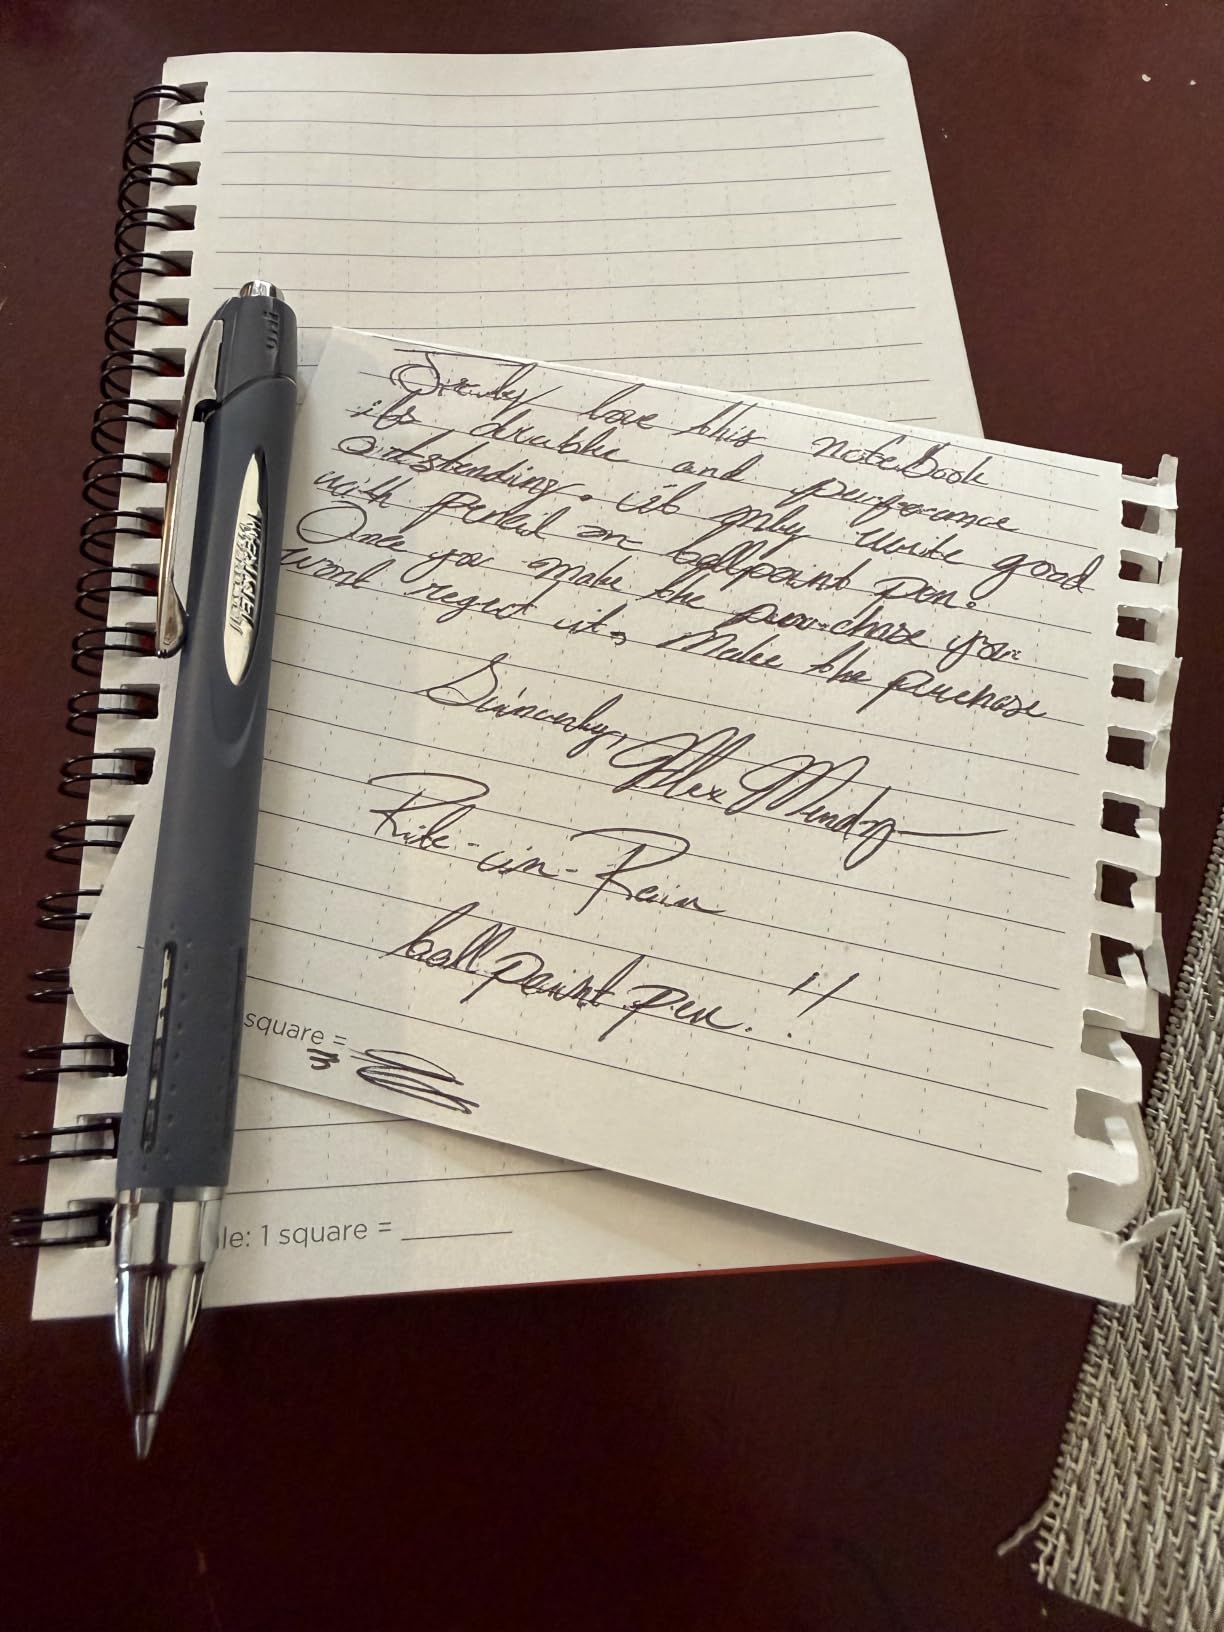 uni
JETSTREAM
love this notebook
its durable and perforance
outstanding. its only write good
with pencil an ballpoint pen.
Once you make the pur-chase you
wont regect it. Make the purchase
Sincerly, Alex Mendoz
Rite-in-Rain
ball point pen. !!
square =
le: 1 square =